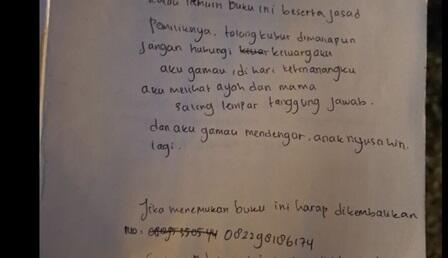 kalau nemuin buku ini beserta jasad
Pemiliknya, tolong kubur dimanapun
Jangan hubungi keluargaku
aku gamau, di hari ketenanganku
aku melihat ayah dan mama
saling lempar tanggung jawab.
dan aku gamau mendengar, anak nyusahin
lagi.
Jika menemukan buku ini harap dikembalikan
No: 082298186174